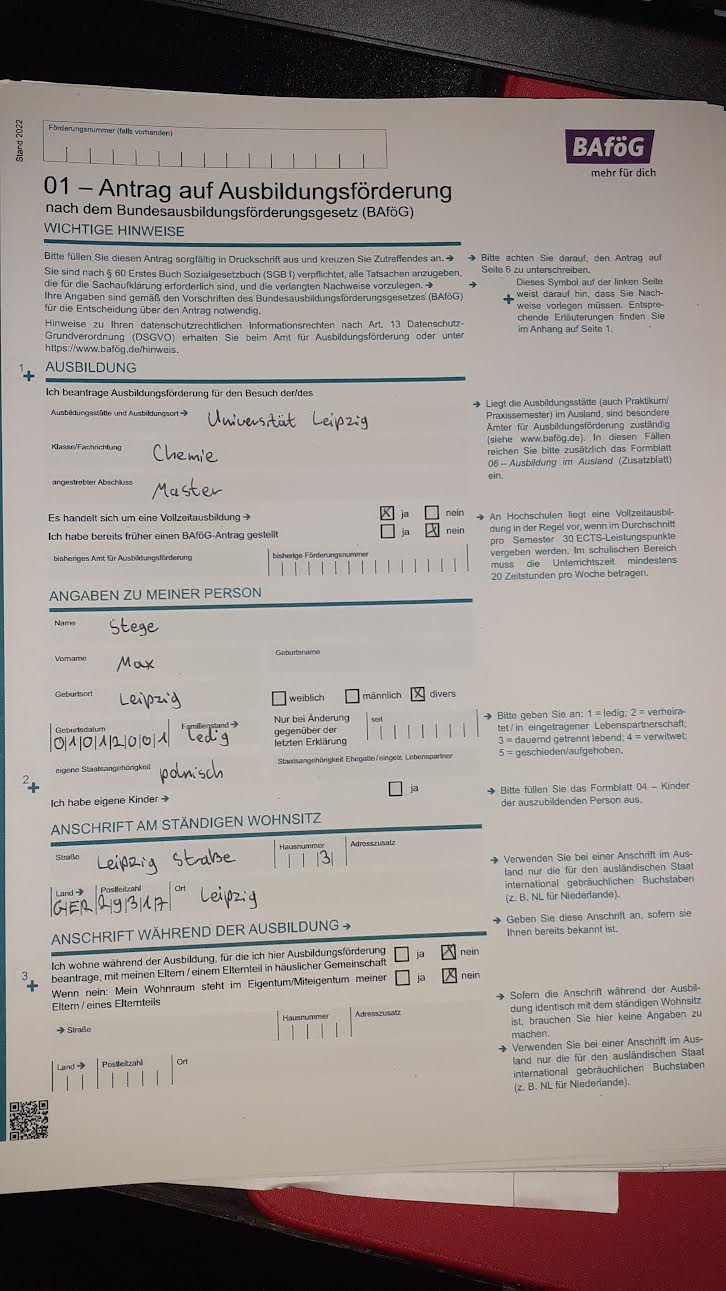 Stand 2022
Förderungsnummer (falls vorhanden)
BAföG
mehr für dich
01 – Antrag auf Ausbildungsförderung
nach dem Bundesausbildungsförderungsgesetz (BAföG)
WICHTIGE HINWEISE
Bitte füllen Sie diesen Antrag sorgfältig in Druckschrift aus und kreuzen Sie Zutreffendes an. →
Sie sind nach § 60 Erstes Buch Sozialgesetzbuch (SGB I) verpflichtet, alle Tatsachen anzugeben,
die für die Sachaufklärung erforderlich sind, und die verlangten Nachweise vorzulegen. →
Ihre Angaben sind gemäß den Vorschriften des Bundesausbildungsförderungsgesetzes (BAföG)
für die Entscheidung über den Antrag notwendig.
Hinweise zu Ihren datenschutzrechtlichen Informationsrechten nach Art. 13 Datenschutz-
Grundverordnung (DSGVO) erhalten Sie beim Amt für Ausbildungsförderung oder unter
https://www.bafög.de/hinweis.
→ Bitte achten Sie darauf, den Antrag auf
Seite 6 zu unterschreiben.
→ Dieses Symbol auf der linken Seite
+ weist darauf hin, dass Sie Nach-
weise vorlegen müssen. Entspre-
chende Erläuterungen finden Sie
im Anhang auf Seite 1.
1+ AUSBILDUNG
Ich beantrage Ausbildungsförderung für den Besuch der/des
Ausbildungsstätte und Ausbildungsort → Universität Leipzig
Klasse/Fachrichtung Chemie
angestrebter Abschluss Master
→ Liegt die Ausbildungsstätte (auch Praktikum/
Praxissemester) im Ausland, sind besondere
Ämter für Ausbildungsförderung zuständig
(siehe www.bafög.de). In diesen Fällen
reichen Sie bitte zusätzlich das Formblatt
06 – Ausbildung im Ausland (Zusatzblatt)
ein.
Es handelt sich um eine Vollzeitausbildung → X ja nein
Ich habe bereits früher einen BAföG-Antrag gestellt ja X nein
bisheriges Amt für Ausbildungsförderung bisherige Förderungsnummer
→ An Hochschulen liegt eine Vollzeitausbil-
dung in der Regel vor, wenn im Durchschnitt
pro Semester 30 ECTS-Leistungspunkte
vergeben werden. Im schulischen Bereich
muss die Unterrichtszeit mindestens
20 Zeitstunden pro Woche betragen.
ANGABEN ZU MEINER PERSON
Name Stege
Vorname Max Geburtsname
Geburtsort Leipzig weiblich männlich X divers
Geburtsdatum 01012001 Familienstand → ledig
Nur bei Änderung
gegenüber der
letzten Erklärung
seit
→ Bitte geben Sie an: 1 = ledig; 2 = verheira-
tet / in eingetragener Lebenspartnerschaft;
3 = dauernd getrennt lebend; 4 = verwitwet;
5 = geschieden/aufgehoben.
eigene Staatsangehörigkeit polnisch Staatsangehörigkeit Ehegatte/eingetr. Lebenspartner
2+ Ich habe eigene Kinder → ja
→ Bitte füllen Sie das Formblatt 04 – Kinder
der auszubildenden Person aus.
ANSCHRIFT AM STÄNDIGEN WOHNSITZ
Straße Leipzig Straße Hausnummer 3 Adresszusatz
Land → GER Postleitzahl 29317 Ort Leipzig
→ Verwenden Sie bei einer Anschrift im Aus-
land nur die für den ausländischen Staat
international gebräuchlichen Buchstaben
(z. B. NL für Niederlande).
ANSCHRIFT WÄHREND DER AUSBILDUNG →
→ Geben Sie diese Anschrift an, sofern sie
Ihnen bereits bekannt ist.
3+ Ich wohne während der Ausbildung, für die ich hier Ausbildungsförderung
beantrage, mit meinen Eltern / einem Elternteil in häuslicher Gemeinschaft ja X nein
Wenn nein: Mein Wohnraum steht im Eigentum/Miteigentum meiner
Eltern / eines Elternteils ja X nein
→ Straße Hausnummer Adresszusatz
Land → Postleitzahl Ort
→ Sofern die Anschrift während der Ausbil-
dung identisch mit dem ständigen Wohnsitz
ist, brauchen Sie hier keine Angaben zu
machen.
→ Verwenden Sie bei einer Anschrift im Aus-
land nur die für den ausländischen Staat
international gebräuchlichen Buchstaben
(z. B. NL für Niederlande).